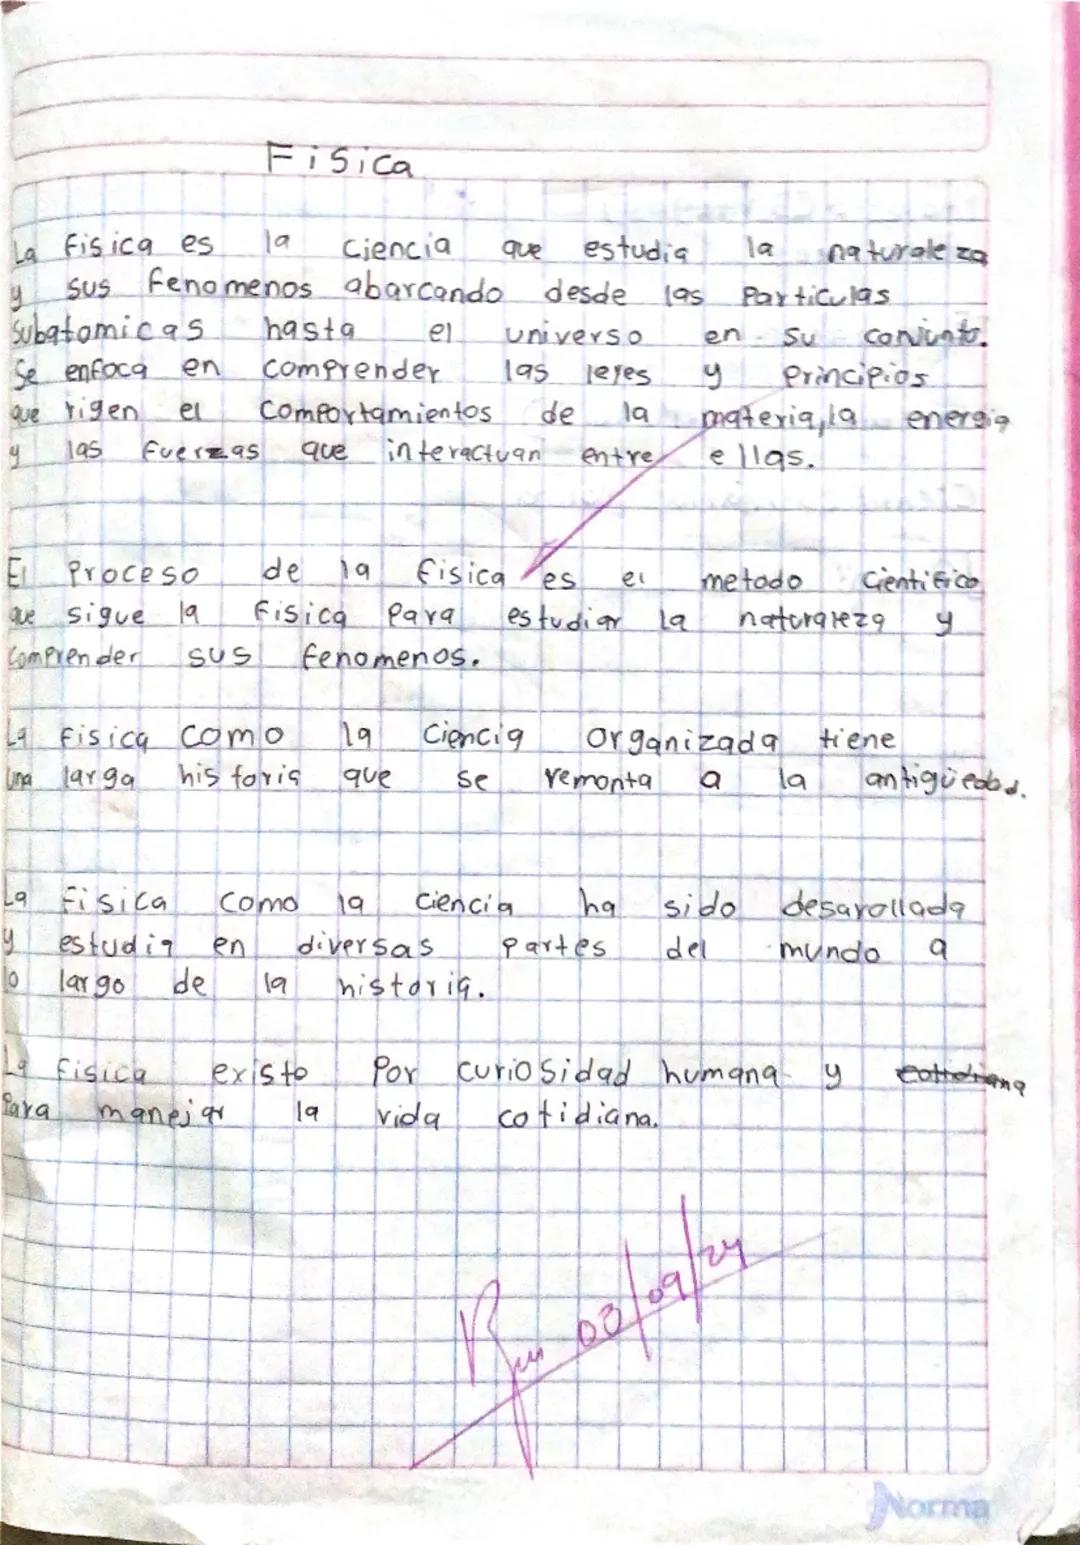 Fisica
La Fisica es la ciencia que estudia la naturaleza
y sus fenomenos abarcando desde las Particulas
Subatomicas hasta el universo en su conjunto.
Se enfoca en comprender las leyes y Principios
que rigen el comportamientos de la materia, la energia
y las fuerzas que interactuan entre ellas.
El Proceso de la fisica es el metodo cientifico
que sigue la fisica Para estudiar la naturaleza y
Comprender sus fenomenos.
La fisica como la ciencia organizada tiene
una larga historia que se remonta a la
La fisica como la ciencia ha sido desarollada
y estudia en diversas partes del mundo a
lo largo de la historia.
La fisica existo Por curiosidad humana y cotidiana
Para manejar la vida cotidiana.
03/09/24
Norma